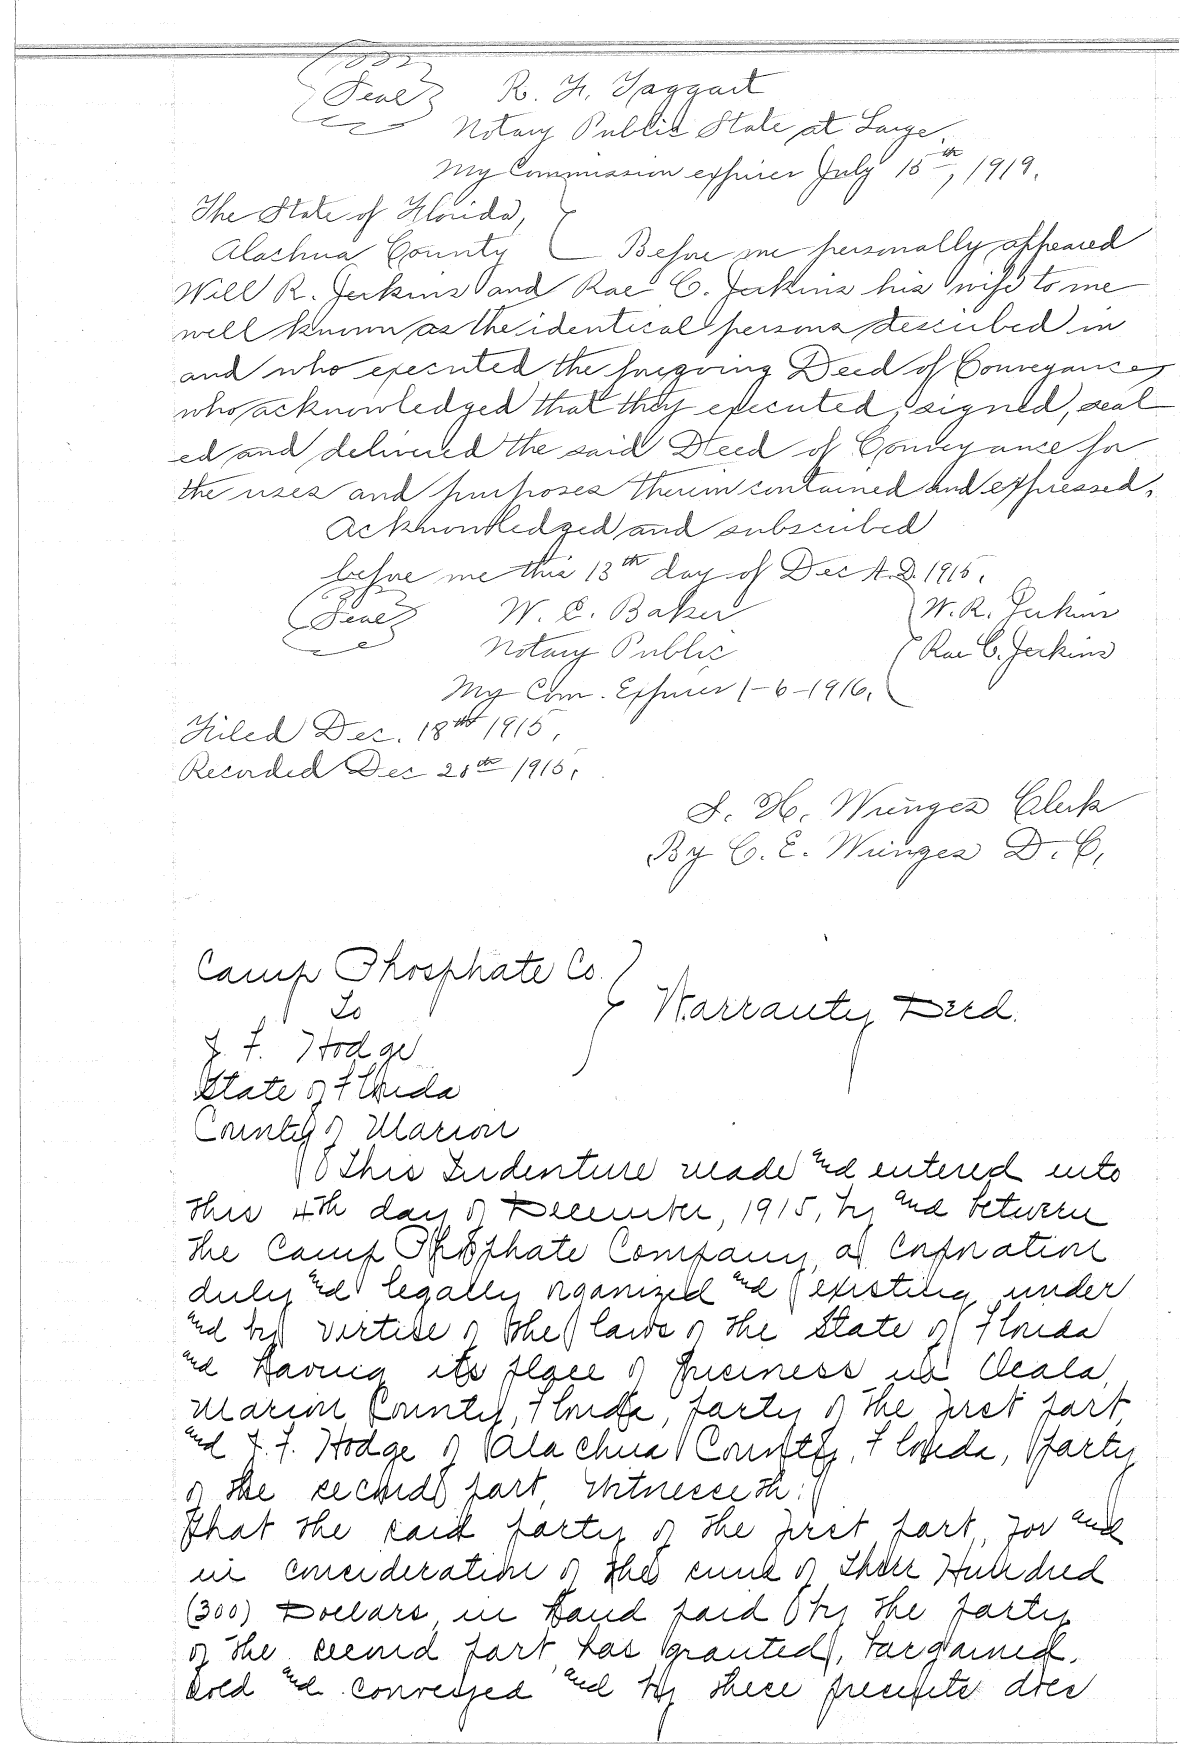 Seal
R. F. Taggart
Notary Public State at Large.
My Commission expires July 15th, 1919.
The State of Florida,
Alachua County
Before me personally appeared
Will R. Jerkins and Rae C. Jerkins his wife to me
well known as the identical persons described in
and who executed the foregoing Deed of Conveyance,
who acknowledged that they executed, signed, seal
ed and delivered the said Deed of Conveyance for
the uses and purposes therein contained and expressed.
Acknowledged and subscribed
before me this 13th day of Dec A.D. 1915.
Seal
W. E. Baker
W. R. Jerkins
Notary Public
Rae C. Jerkins
My Com. Expires 1-6-1916.
Filed Dec. 18th 1915.
Recorded Dec 28th 1915.
S. H. Wienges Clerk
By C. E. Wienges D. C.
Camp Phosphate Co.
To
Warranty Deed.
J. F. Hodge
State of Florida
County of Marion
This Indenture made and entered into
this 4th day of December, 1915, by and between
the Camp Phosphate Company, a Corporation
duly and legally organized and existing under
and by virtue of the laws of the State of Florida
and having its place of business in Ocala,
Marion County, Florida, party of the first part,
and J. F. Hodge of Alachua County, Florida, party
of the second part, Witnesseth:
That the said party of the first part, for and
in consideration of the sum of Three Hundred
(300) Dollars, in hand paid by the party
of the second part, has granted, bargained,
sold and conveyed and by these presents does